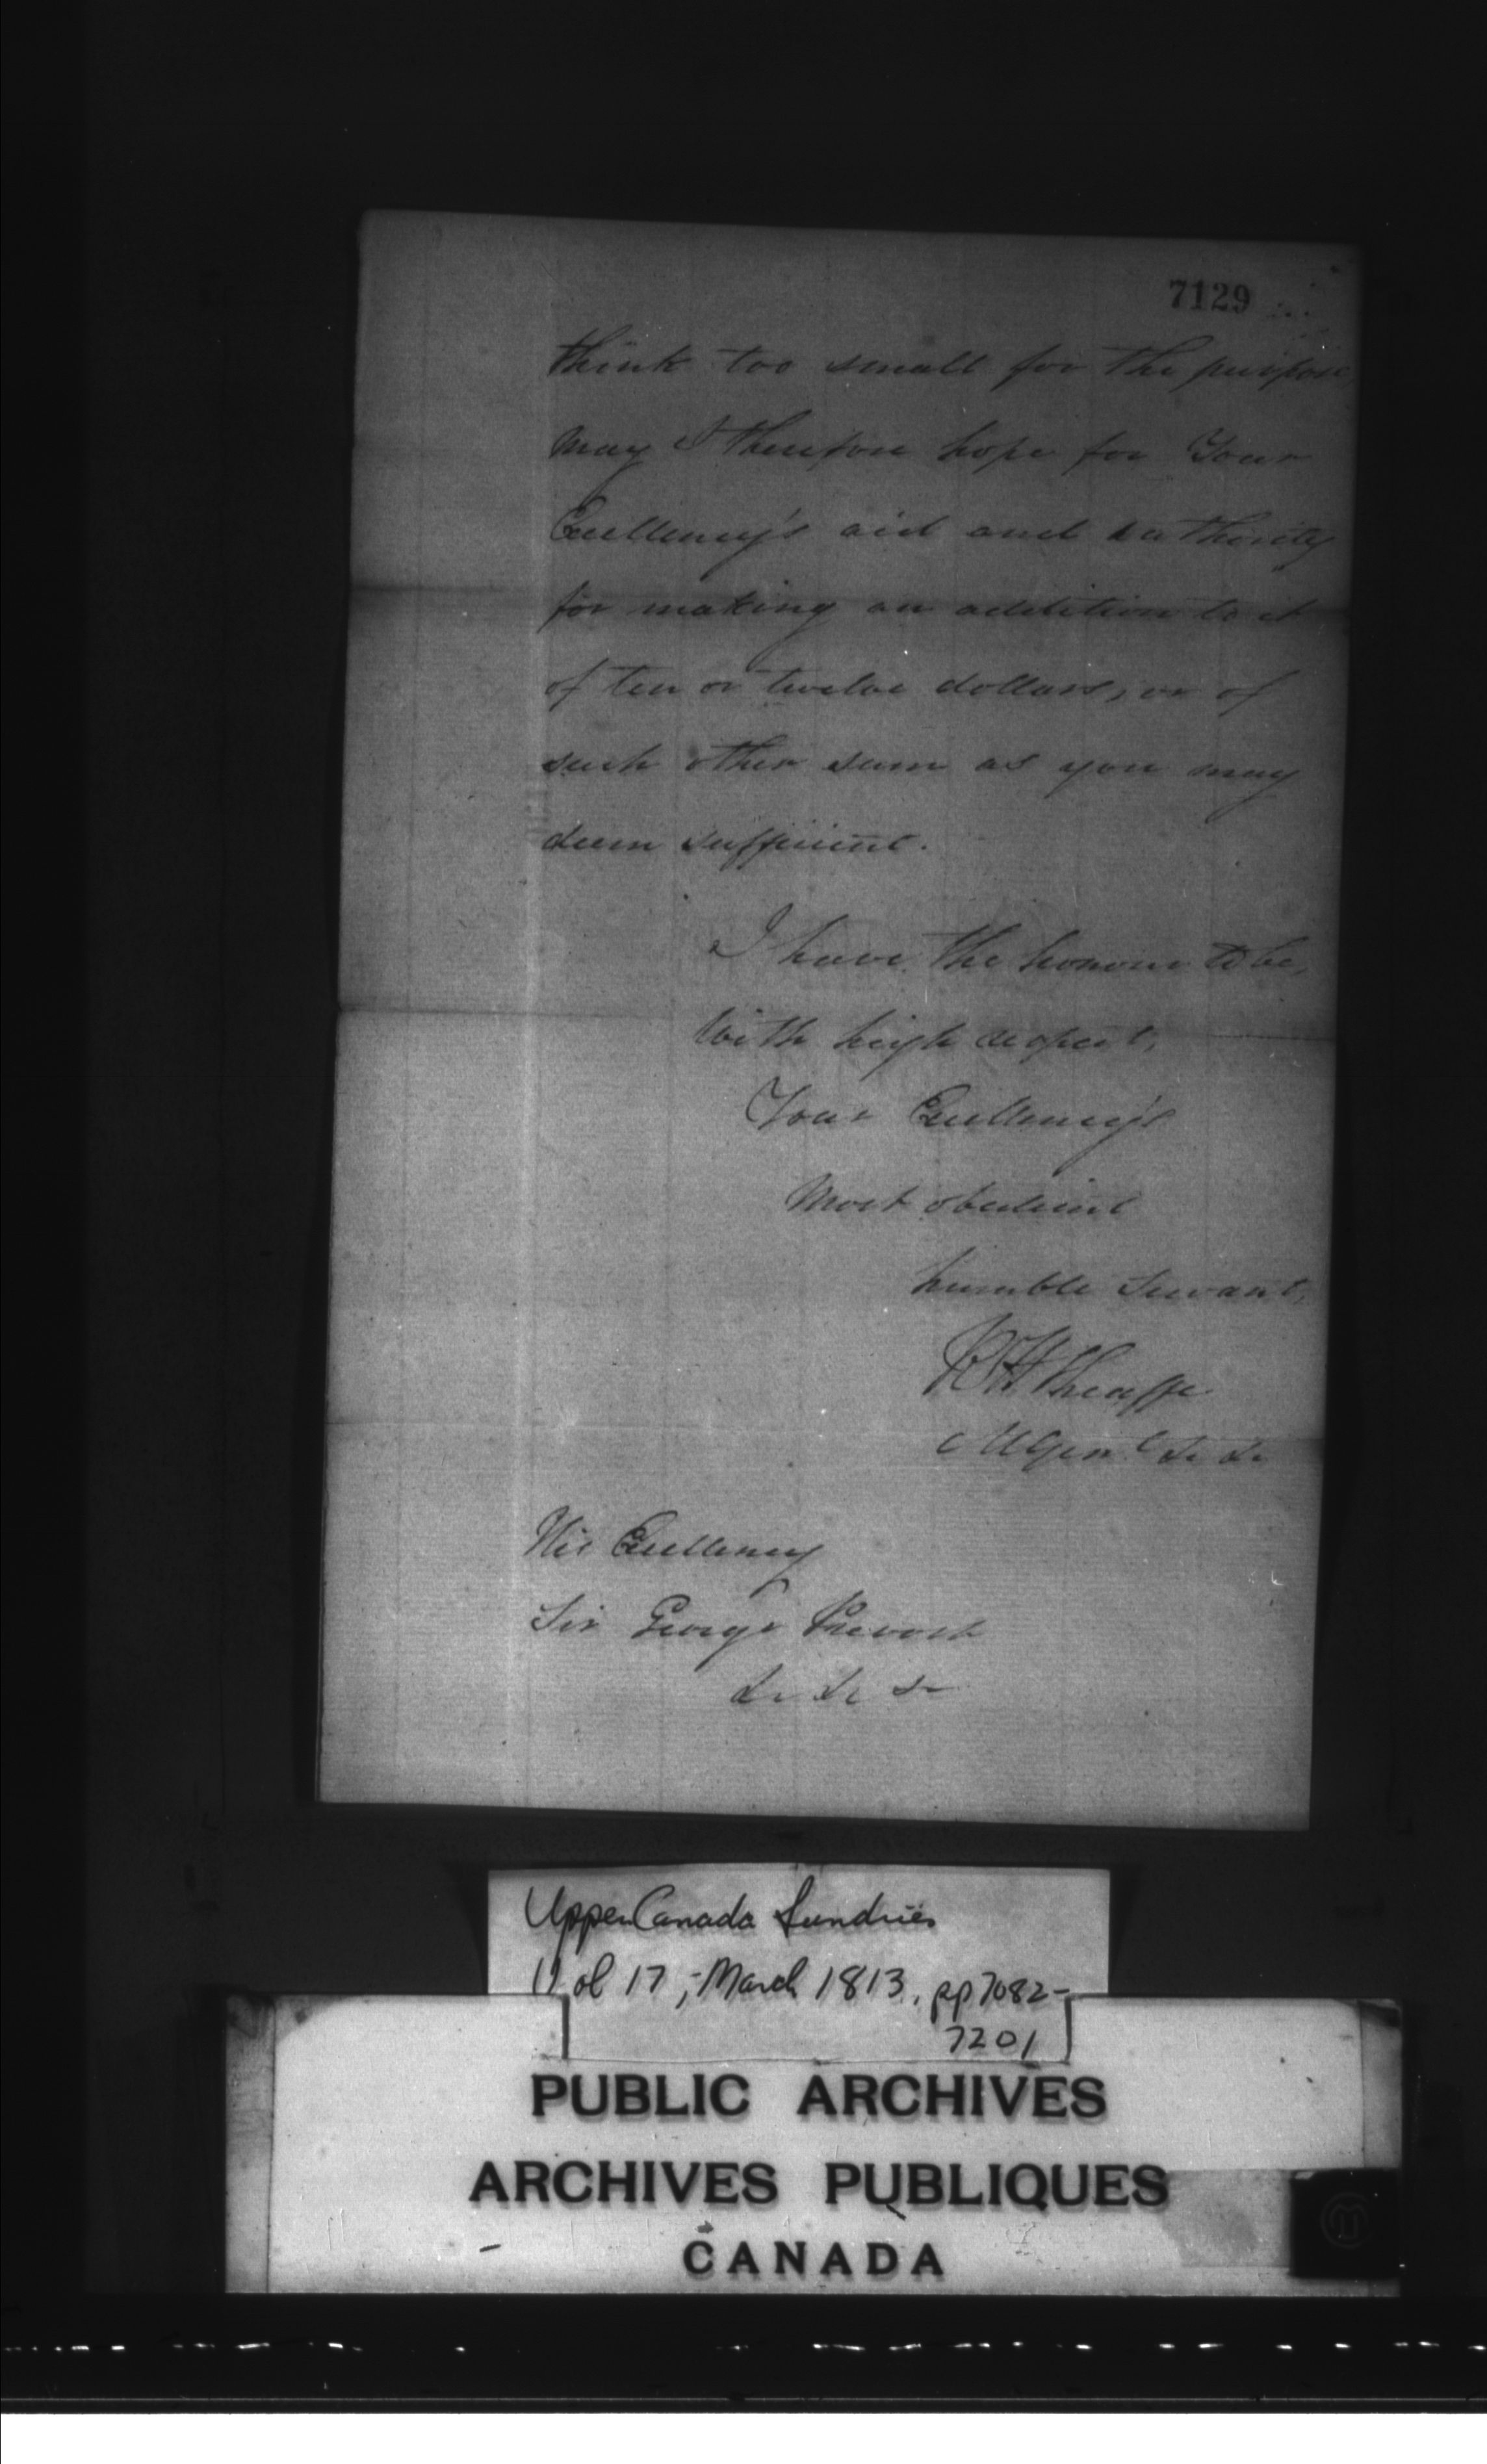 7129
think too small for the purpose,
May I therefore hope for Your
Excellency's aid and authority
for making an addition to it
of ten or twelve dollars, or of
such other sum as you may
deem sufficient.
I have the honour to be,
With high respect,
Your Excellency's
Most obedient
humble Servant,
RHSheaffe
MGen.l &c &c
His Excellency
Sir George Prevost
&c &c &c
Upper Canada Sundries
Vol 17, March 1813, pp 7082-
7201
PUBLIC ARCHIVES
ARCHIVES PUBLIQUES
CANADA